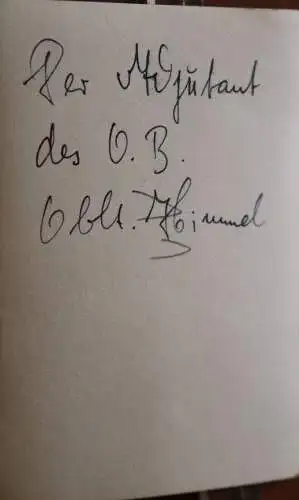 Der Adjutant
des O.B.
Oblt. Himmel